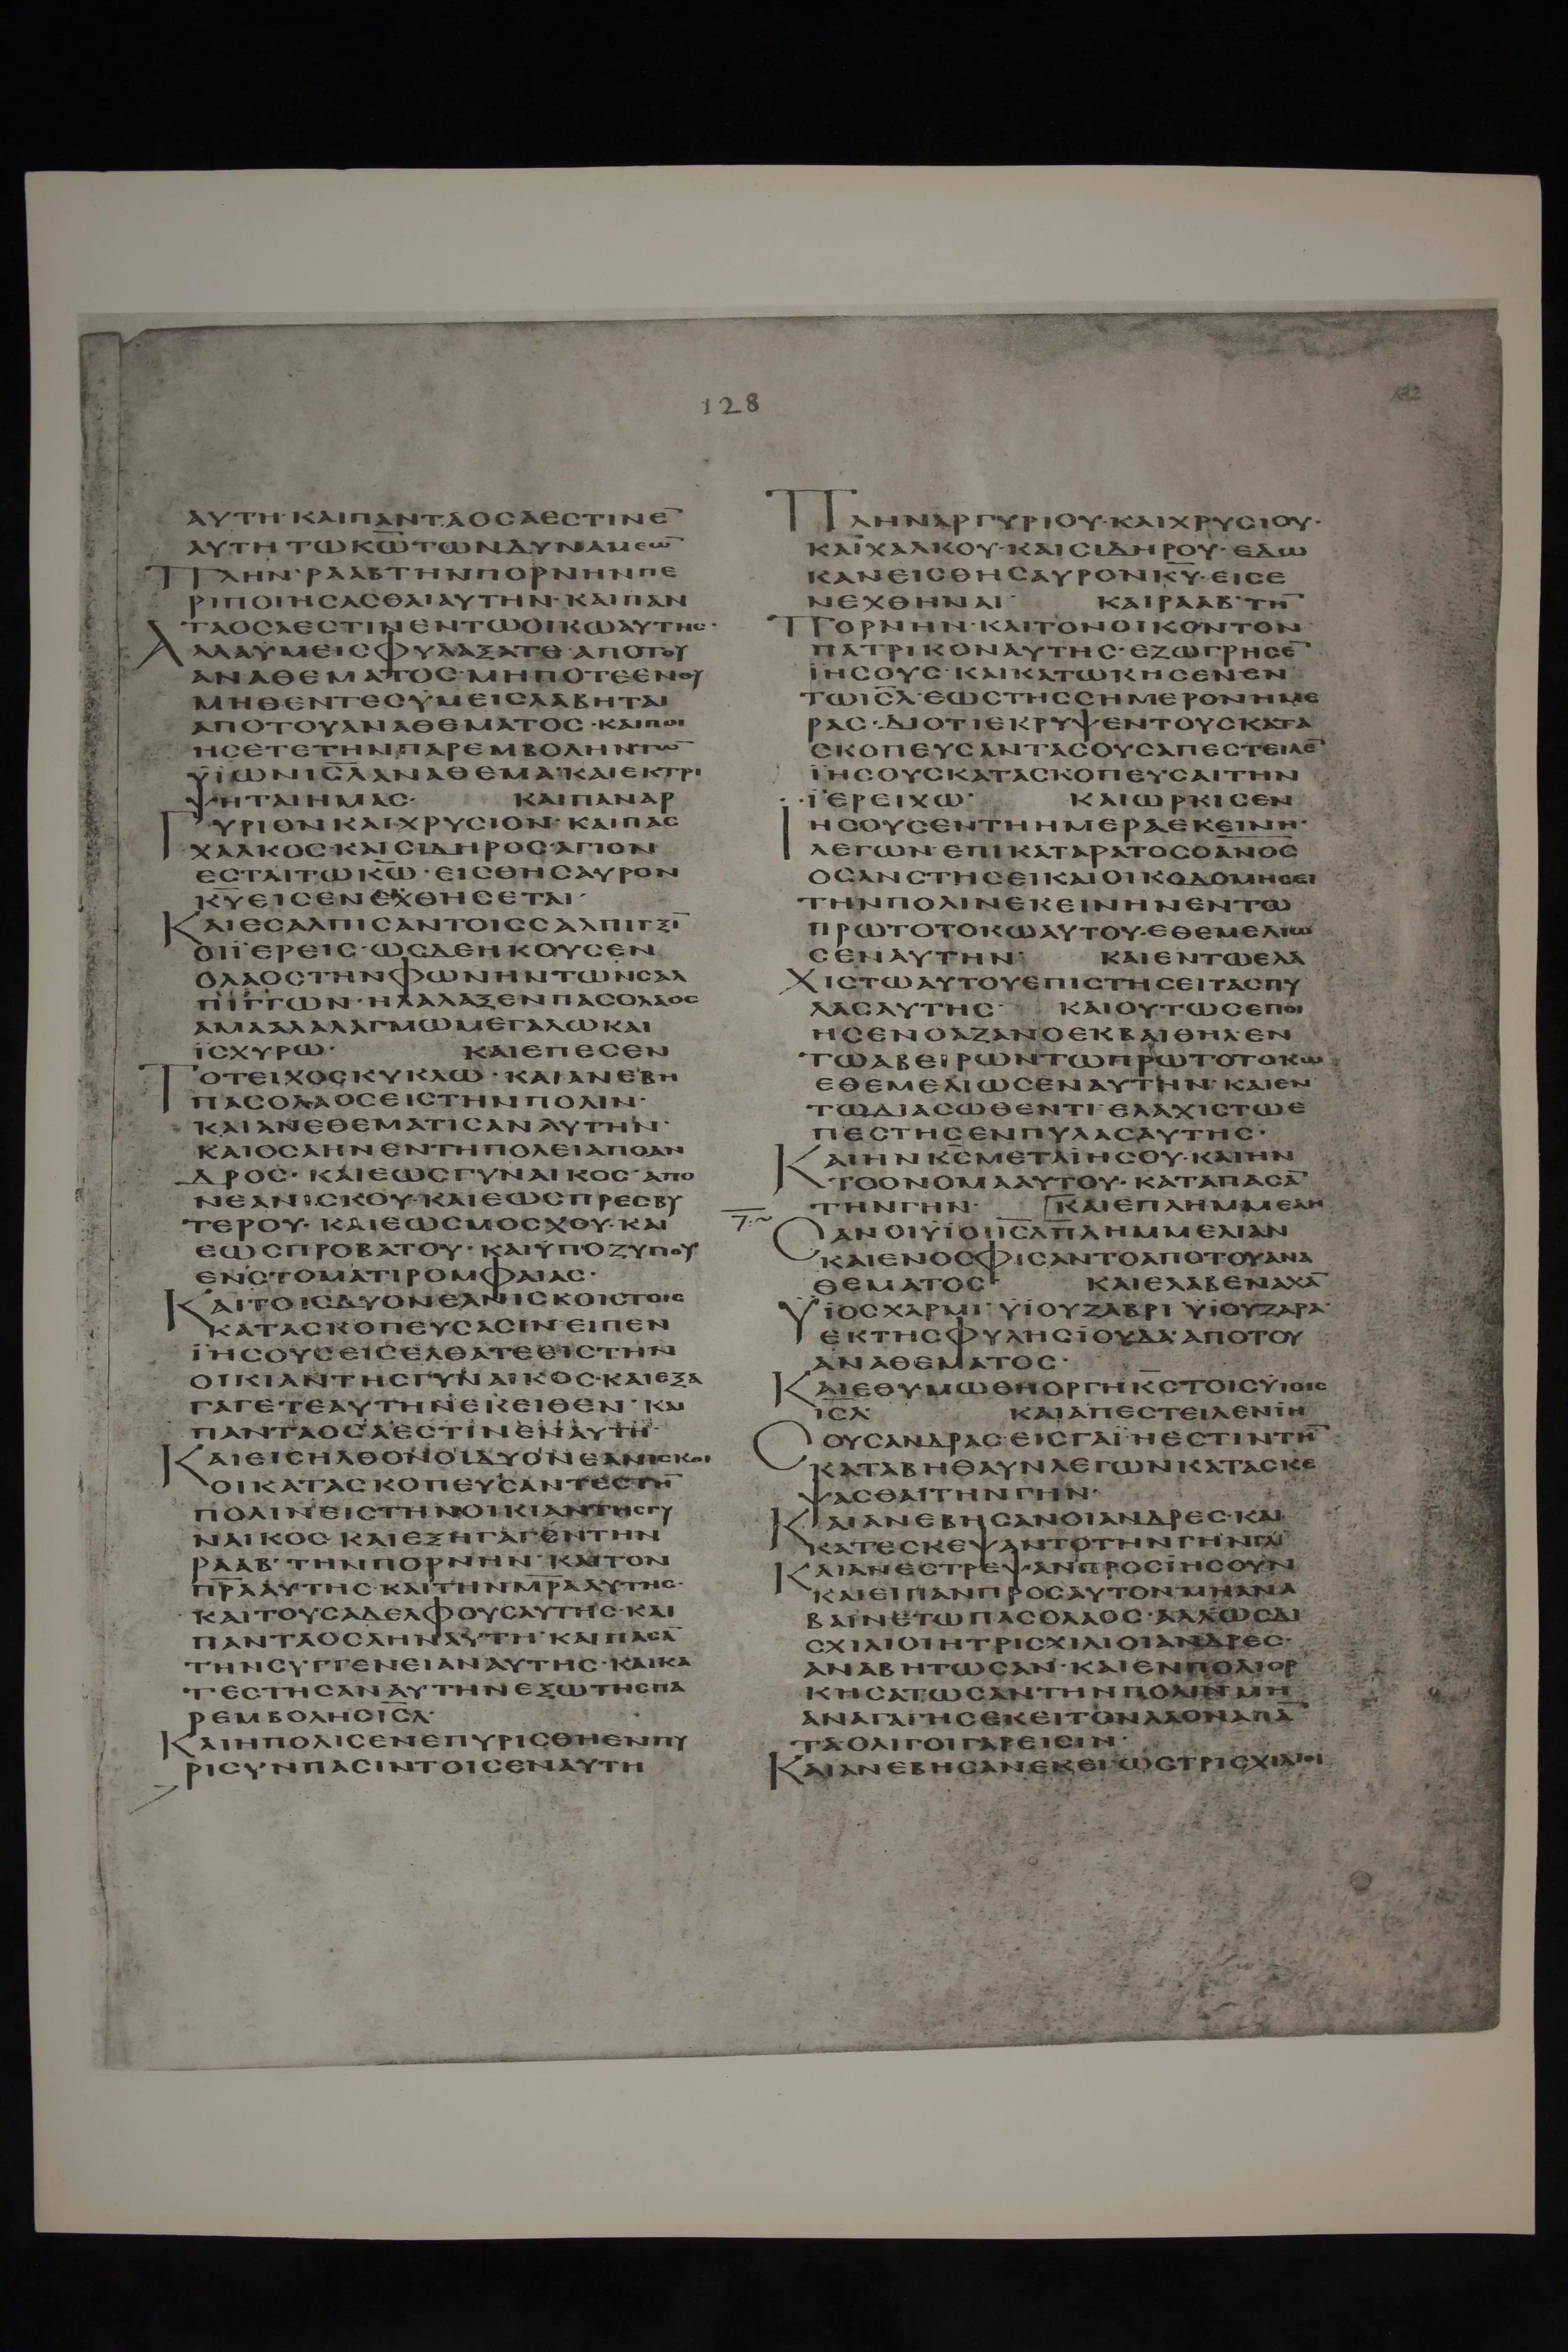 128
132
ΑΥΤΗ· ΚΑΙΠΑΝΤΑΟСΑΕСΤΙΝΕ̅
ΑΥΤΗ ΤωΚω̅ΤωΝΔΥΝΑΜΕω̅
ΠΛΗΝ· ΡΑΑΒΤΗΝΠΟΡΝΗΝΠΕ
ΡΙΠΟΙΗСΑСΘΑΙΑΥΤΗΝ· ΚΑΙΠΑΝ
ΤΑΟСΑΕСΤΙΝΕΝΤωΟΙΚωΑΥΤΗС·
ΑΛΛΑΥΜΕΙСΦΥΛΑΞΑΤΕ· ΑΠΟΤΟΥ
ΑΝΑΘΕΜΑΤΟС· ΜΗΠΟΤΕΕΝΟΥ
ΜΗΘΕΝΤΕСΥΜΕΙСΛΑΒΗΤΑΙ
ΑΠΟΤΟΥΑΝΑΘΕΜΑΤΟС· ΚΑΙΠΟΙ
ΗСΕΤΕΤΗΝΠΑΡΕΜΒΟΛΗΝΤω̅
ΥΪωΝΙС̅ΛΑΝΑΘΕΜΑ· ΚΑΙΕΚΤΡΙ
ΨΗΤΑΙΗΜΑС· ΚΑΙΠΑΝΑΡ
ΓΥΡΙΟΝΚΑΙΧΡΥСΙΟΝ· ΚΑΙΠΑС
ΧΑΛΚΟС· ΚΑΙСΙΔΗΡΟС· ΑΓΙΟΝ
ΕСΤΑΙΤωΚω̅· ΕΙСΘΗСΑΥΡΟΝ
ΚΥ̅ΕΙСΕΝΕΧΘΗСΕΤΑΙ·
ΚΑΙΕСΑΛΠΙСΑΝΤΟΙССΑΛΠΙΓΞΙ̅
ΟΙΪΕΡΕΙС· ωСΔΕΗΚΟΥСΕΝ
ΟΛΑΟСΤΗΝΦωΝΗΝΤωΝСΑΛ
ΠΙΓΓωΝ· ΗΛΑΛΑΞΕΝΠΑСΟΛΑΟС
ΑΜΑΑΛΑΛΑΓΜωΜΕΓΑΛωΚΑΙ
ΪСΧΥΡω· ΚΑΙΕΠΕСΕΝ
ΤΟΤΕΙΧΟСΚΥΚΛω· ΚΑΙΑΝΕΒΗ
ΠΑСΟΛΑΟСΕΙСΤΗΝΠΟΛΙΝ·
ΚΑΙΑΝΕΘΕΜΑΤΙСΑΝΑΥΤΗΝ·
ΚΑΙΟСΑΗΝΕΝΤΗΠΟΛΕΙΑΠΟΑΝ
ΔΡΟС· ΚΑΙΕωСΓΥΝΑΙΚΟС· ΑΠΟ
ΝΕΑΝΙСΚΟΥ· ΚΑΙΕωСΠΡΕСΒΥ
ΤΕΡΟΥ· ΚΑΙΕωСΜΟСΧΟΥ· ΚΑΙ
ΕωСΠΡΟΒΑΤΟΥ· ΚΑΙΥΠΟΖΥΓΙΟΥ
ΕΝСΤΟΜΑΤΙΡΟΜΦΑΙΑС·
ΚΑΙΤΟΙСΔΥΟΝΕΑΝΙСΚΟΙСΤΟΙС
ΚΑΤΑСΚΟΠΕΥСΑСΙΝ· ΕΙΠΕΝ
ΪΗСΟΥС· ΕΙСΕΛΘΑΤΕΕΙСΤΗΝ
ΟΙΚΙΑΝΤΗСΓΥΝΑΙΚΟС· ΚΑΙΕΞΑ
ΓΑΓΕΤΕΑΥΤΗΝΕΚΕΙΘΕΝ· ΚΑΙ
ΠΑΝΤΑΟСΑΕСΤΙΝΕΝΑΥΤΗ·
ΚΑΙΕΙСΗΛΘΟΝΟΙΔΥΟΝΕΑΝΙСΚΟΙ
ΟΙΚΑΤΑСΚΟΠΕΥСΑΝΤΕСΤΗ̅
ΠΟΛΙΝΕΙСΤΗΝΟΙΚΙΑΝΤΗСΓΥ
ΝΑΙΚΟС· ΚΑΙΕΞΗΓΑΓΟΝΤΗΝ
ΡΑΑΒ· ΤΗΝΠΟΡΝΗΝ· ΚΑΙΤΟΝ
ΠΡ̅ΑΑΥΤΗС· ΚΑΙΤΗΝΜΡ̅ΑΑΥΤΗС·
ΚΑΙΤΟΥСΑΔΕΛΦΟΥСΑΥΤΗС· ΚΑΙ
ΠΑΝΤΑΟСΑΗΝΑΥΤΗ· ΚΑΙΠΑСΑ̅
ΤΗΝСΥΓΓΕΝΕΙΑΝΑΥΤΗС· ΚΑΙΚΑ
ΤΕСΤΗСΑΝΑΥΤΗΝΕΞωΤΗСΠΑ
ΡΕΜΒΟΛΗСΙС̅Λ·
ΚΑΙΗΠΟΛΙСΕΝΕΠΥΡΙСΘΗΕΝΠΥ
ΡΙСΥΝΠΑСΙΝΤΟΙСΕΝΑΥΤΗ
ΠΛΗΝΑΡΓΥΡΙΟΥ· ΚΑΙΧΡΥСΙΟΥ·
ΚΑΙΧΑΛΚΟΥ· ΚΑΙСΙΔΗΡΟΥ· ΕΔω
ΚΑΝΕΙСΘΗСΑΥΡΟΝΚΥ̅· ΕΙСΕ
ΝΕΧΘΗΝΑΙ· ΚΑΙΡΑΑΒ· ΤΗ̅
ΠΟΡΝΗΝ· ΚΑΙΤΟΝΟΙΚΟΝΤΟΝ
ΠΑΤΡΙΚΟΝΑΥΤΗС· ΕΖωΓΡΗСΕ̅
ΪΗСΟΥС· ΚΑΙΚΑΤωΚΗСΕΝΕΝ
ΤωΙС̅Λ· ΕωСΤΗССΗΜΕΡΟΝΗΜΕ
ΡΑС· ΔΙΟΤΙΕΚΡΥΨΕΝΤΟΥСΚΑΤΑ
СΚΟΠΕΥСΑΝΤΑСΟΥСΑΠΕСΤΕΙΛΕ̅
ΪΗСΟΥСΚΑΤΑСΚΟΠΕΥСΑΙΤΗΝ
ΪΕΡΕΙΧω· ΚΑΙωΡΚΙСΕΝ
ΙΗСΟΥСΕΝΤΗΗΜΕΡΑΕΚΕΙΝΗ·
ΛΕΓωΝ· ΕΠΙΚΑΤΑΡΑΤΟСΟΑΝ̅ΟС
ΟСΑΝСΤΗСΕΙΚΑΙΟΙΚΟΔΟΜΗСΕΙ
ΤΗΝΠΟΛΙΝΕΚΕΙΝΗΝΕΝΤω
ΠΡωΤΟΤΟΚωΑΥΤΟΥ· ΕΘΕΜΕΛΙω
СΕΝΑΥΤΗΝ· ΚΑΙΕΝΤωΕΛΑ
ΧΙСΤωΑΥΤΟΥΕΠΙСΤΗСΕΙΤΑСΠΥ
ΛΑСΑΥΤΗС· ΚΑΙΟΥΤωСΕΠΟΙ
ΗСΕΝΟΑΖΑΝΟΕΚΒΑΙΘΗΛΕΝ
ΤωΑΒΕΙΡωΝΤωΠΡωΤΟΤΟΚω
ΕΘΕΜΕΛΙωСΕΝΑΥΤΗΝ· ΚΑΙΕΝ
ΤωΔΙΑСωΘΕΝΤΙ· ΕΛΑΧΙСΤωΕ
ΠΕСΤΗСΕΝΠΥΛΑСΑΥΤΗС·
ΚΑΙΗΝΚС̅ΜΕΤΑΪΗСΟΥ· ΚΑΙΗΝ
ΤΟΟΝΟΜΑΑΥΤΟΥ· ΚΑΤΑΠΑСΑ̅
ΤΗΝΓΗΝ· ΚΑΙΕΠΛΗΜΜΕΛΗ
СΑΝΟΙΥΪΟΙΙС̅ΛΠΛΗΜΜΕΛΙΑΝ
ΚΑΙΕΝΟСΦΙСΑΝΤΟΑΠΟΤΟΥΑΝΑ
ΘΕΜΑΤΟС· ΚΑΙΕΛΑΒΕΝΑΧΑ̅
ΥΪΟСΧΑΡΜΙ· ΥΪΟΥΖΑΒΡΙ· ΥΪΟΥΖΑΡΑ·
ΕΚΤΗСΦΥΛΗСΪΟΥΔΑ· ΑΠΟΤΟΥ
ΑΝΑΘΕΜΑΤΟС·
ΚΑΙΕΘΥΜωΘΗΟΡΓΗΚС̅ΤΟΙСΥΪΟΙС
ΙС̅Λ· ΚΑΙΑΠΕСΤΕΙΛΕΝΪΗ
СΟΥСΑΝΔΡΑС· ΕΙСΓΑΙ· ΗΕСΤΙΝΤΗ̅
ΚΑΤΑΒΗΘΑΥΝΛΕΓωΝΚΑΤΑСΚΕ
ΨΑСΘΑΙΤΗΝΓΗΝ·
ΚΑΙΑΝΕΒΗСΑΝΟΙΑΝΔΡΕС· ΚΑΙ
ΚΑΤΕСΚΕΨΑΝΤΟΤΗΝΓΗΝΓΑΙ
ΚΑΙΑΝΕСΤΡΕΨΑΝΠΡΟСΪΗСΟΥΝ
ΚΑΙΕΙΠΑΝΠΡΟСΑΥΤΟΝΜΗΑΝΑ
ΒΑΙΝΕΤωΠΑСΟΛΑΟС· ΑΛΛωСΔΙ
СΧΙΛΙΟΙΗΤΡΙСΧΙΛΙΟΙΑΝΔΡΕС·
ΑΝΑΒΗΤωСΑΝ· ΚΑΙΕΝΠΟΛΙΟΡ
ΚΗСΑΤωСΑΝΤΗΝΠΟΛΙΝΜΗ
ΑΝΑΓΑΓΗСΕΚΕΙΤΟΝΛΑΟΝΑΠΑ̅
ΤΑΟΛΙΓΟΙΓΑΡΕΙСΙΝ·
ΚΑΙΑΝΕΒΗСΑΝΕΚΕΙ· ωСΤΡΙСΧΙΛΙΟΙ